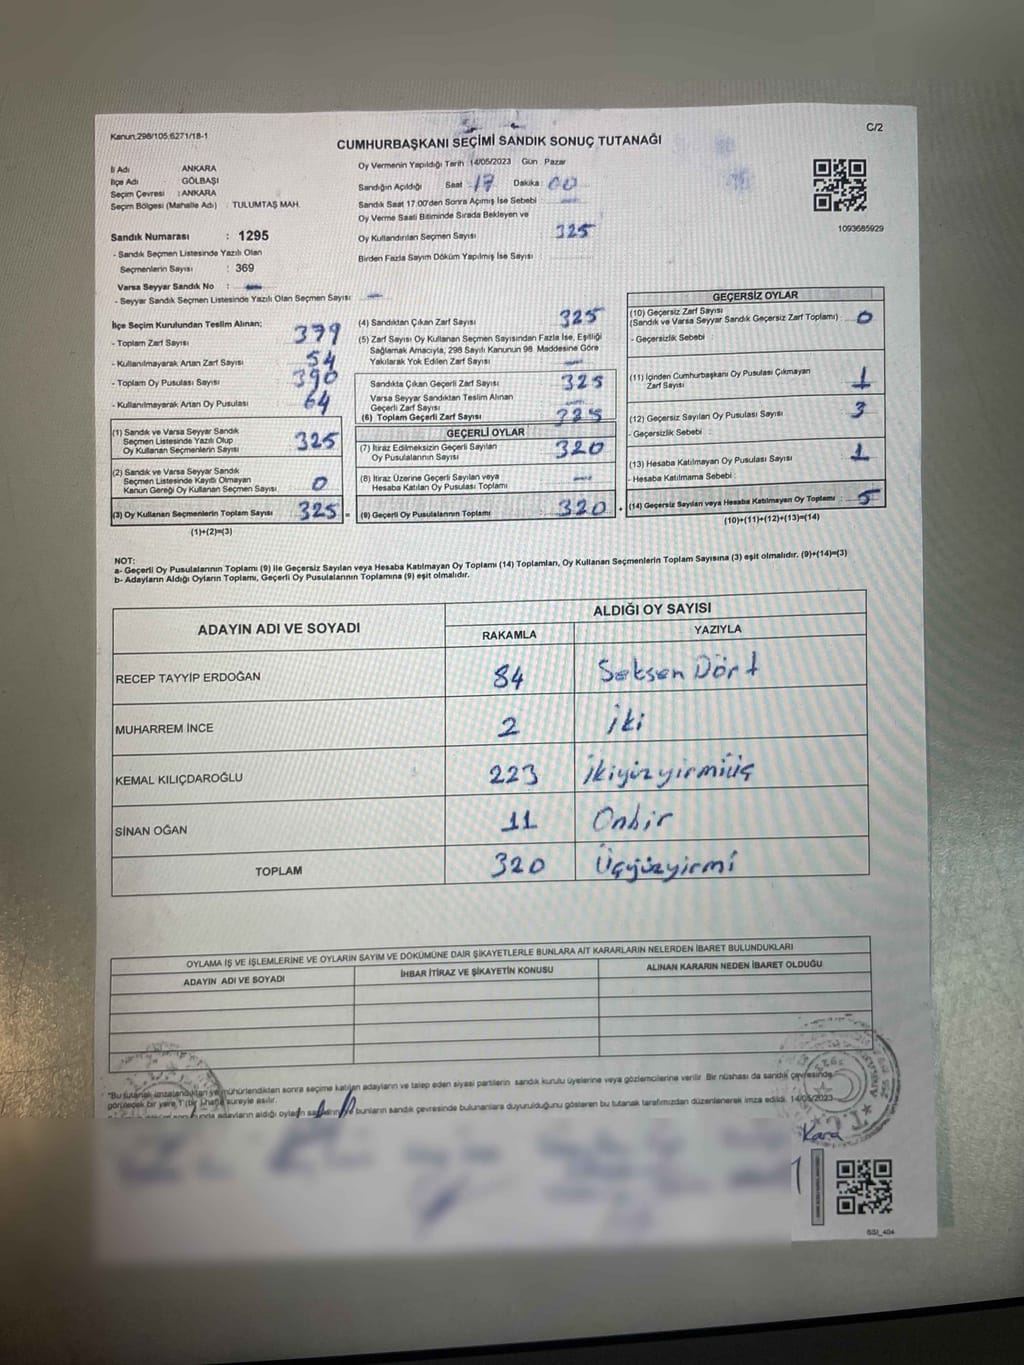 Kanun:298/105;6271/18-1
C/2
CUMHURBAŞKANI SEÇİMİ SANDIK SONUÇ TUTANAĞI
İl Adı ANKARA
İlçe Adı GÖLBAŞI
Seçim Çevresi : ANKARA
Seçim Bölgesi (Mahalle Adı) : TULUMTAŞ MAH.
Sandık Numarası : 1295
- Sandık Seçmen Listesinde Yazılı Olan
Seçmenlerin Sayısı : 369
Varsa Seyyar Sandık No :
- Seyyar Sandık Seçmen Listesinde Yazılı Olan Seçmen Sayısı
Oy Vermenin Yapıldığı Tarih 14/05/2023 Gün : Pazar
Sandığın Açıldığı Saat 17 Dakika : 00
Sandık Saat 17:00'den Sonra Açmış İse Sebebi
Oy Verme Saati Bitiminde Sırada Bekleyen ve
Oy Kullandırılan Seçmen Sayısı 325
Birden Fazla Sayım Döküm Yapılmış İse Sayısı
1093685929
İlçe Seçim Kurulundan Teslim Alınan;
- Toplam Zarf Sayısı 379
- Kullanılmayarak Artan Zarf Sayısı 54
- Toplam Oy Pusulası Sayısı 390
- Kullanılmayarak Artan Oy Pusulası 64
(1) Sandık ve Varsa Seyyar Sandık
Seçmen Listesinde Yazılı Olup
Oy Kullanan Seçmenlerin Sayısı 325
(2) Sandık ve Varsa Seyyar Sandık
Seçmen Listesinde Kayıtlı Olmayan
Kanun Gereği Oy Kullanan Seçmen Sayısı 0
(3) Oy Kullanan Seçmenlerin Toplam Sayısı 325 =
(1)+(2)=(3)
(4) Sandıktan Çıkan Zarf Sayısı 325
(5) Zarf Sayısı Oy Kullanan Seçmen Sayısından Fazla İse, Eşitliği
Sağlamak Amacıyla, 298 Sayılı Kanunun 98. Maddesine Göre
Yakılarak Yok Edilen Zarf Sayısı
Sandıkta Çıkan Geçerli Zarf Sayısı 325
Varsa Seyyar Sandıktan Teslim Alınan
Geçerli Zarf Sayısı
(6) Toplam Geçerli Zarf Sayısı 325
GEÇERLİ OYLAR
(7) İtiraz Edilmeksizin Geçerli Sayılan
Oy Pusulalarının Sayısı 320
(8) İtiraz Üzerine Geçerli Sayılan veya
Hesaba Katılan Oy Pusulası Toplamı
(9) Geçerli Oy Pusulalarının Toplamı 320 +
GEÇERSİZ OYLAR
(10) Geçersiz Zarf Sayısı
(Sandık ve Varsa Seyyar Sandık Geçersiz Zarf Toplamı) : 0
- Geçersizlik Sebebi :
(11) İçinden Cumhurbaşkanı Oy Pusulası Çıkmayan
Zarf Sayısı 1
(12) Geçersiz Sayılan Oy Pusulası Sayısı 3
- Geçersizlik Sebebi :
(13) Hesaba Katılmayan Oy Pusulası Sayısı 1
- Hesaba Katılmama Sebebi :
(14) Geçersiz Sayılan veya Hesaba Katılmayan Oy Toplamı : 5
(10)+(11)+(12)+(13)=(14)
NOT:
a- Geçerli Oy Pusulalarının Toplamı (9) ile Geçersiz Sayılan veya Hesaba Katılmayan Oy Toplamı (14) Toplamları, Oy Kullanan Seçmenlerin Toplam Sayısına (3) eşit olmalıdır. (9)+(14)=(3)
b- Adayların Aldığı Oyların Toplamı, Geçerli Oy Pusulalarının Toplamına (9) eşit olmalıdır.
ADAYIN ADI VE SOYADI ALDIĞI OY SAYISI
RAKAMLA YAZIYLA
RECEP TAYYİP ERDOĞAN 84 Seksen Dört
MUHARREM İNCE 2 İki
KEMAL KILIÇDAROĞLU 223 İkiyüzyirmiüç
SİNAN OĞAN 11 Onbir
TOPLAM 320 Üçyüzyirmi
OYLAMA İŞ VE İŞLEMLERİNE VE OYLARIN SAYIM VE DÖKÜMÜNE DAİR ŞİKAYETLERLE BUNLARA AİT KARARLARIN NELERDEN İBARET BULUNDUKLARI
ADAYIN ADI VE SOYADI İHBAR İTİRAZ VE ŞİKAYETİN KONUSU ALINAN KARARIN NEDEN İBARET OLDUĞU
"Bu tutanak imzalandıktan ve mühürlendikten sonra seçime katılan adayların ve talep eden siyasi partilerin sandık kurulu üyelerine veya gözlemcilerine verilir. Bir nüshası da sandık çevresinde
görülecek bir yere 1 (bir) hafta süreyle asılır.
adayların aldığı oyların bunların sandık çevresinde bulunanlara duyurulduğunu gösteren bu tutanak tarafımızdan düzenlenerek imza edildi. 14/05/2023
T.C.
Kara
SSI_404